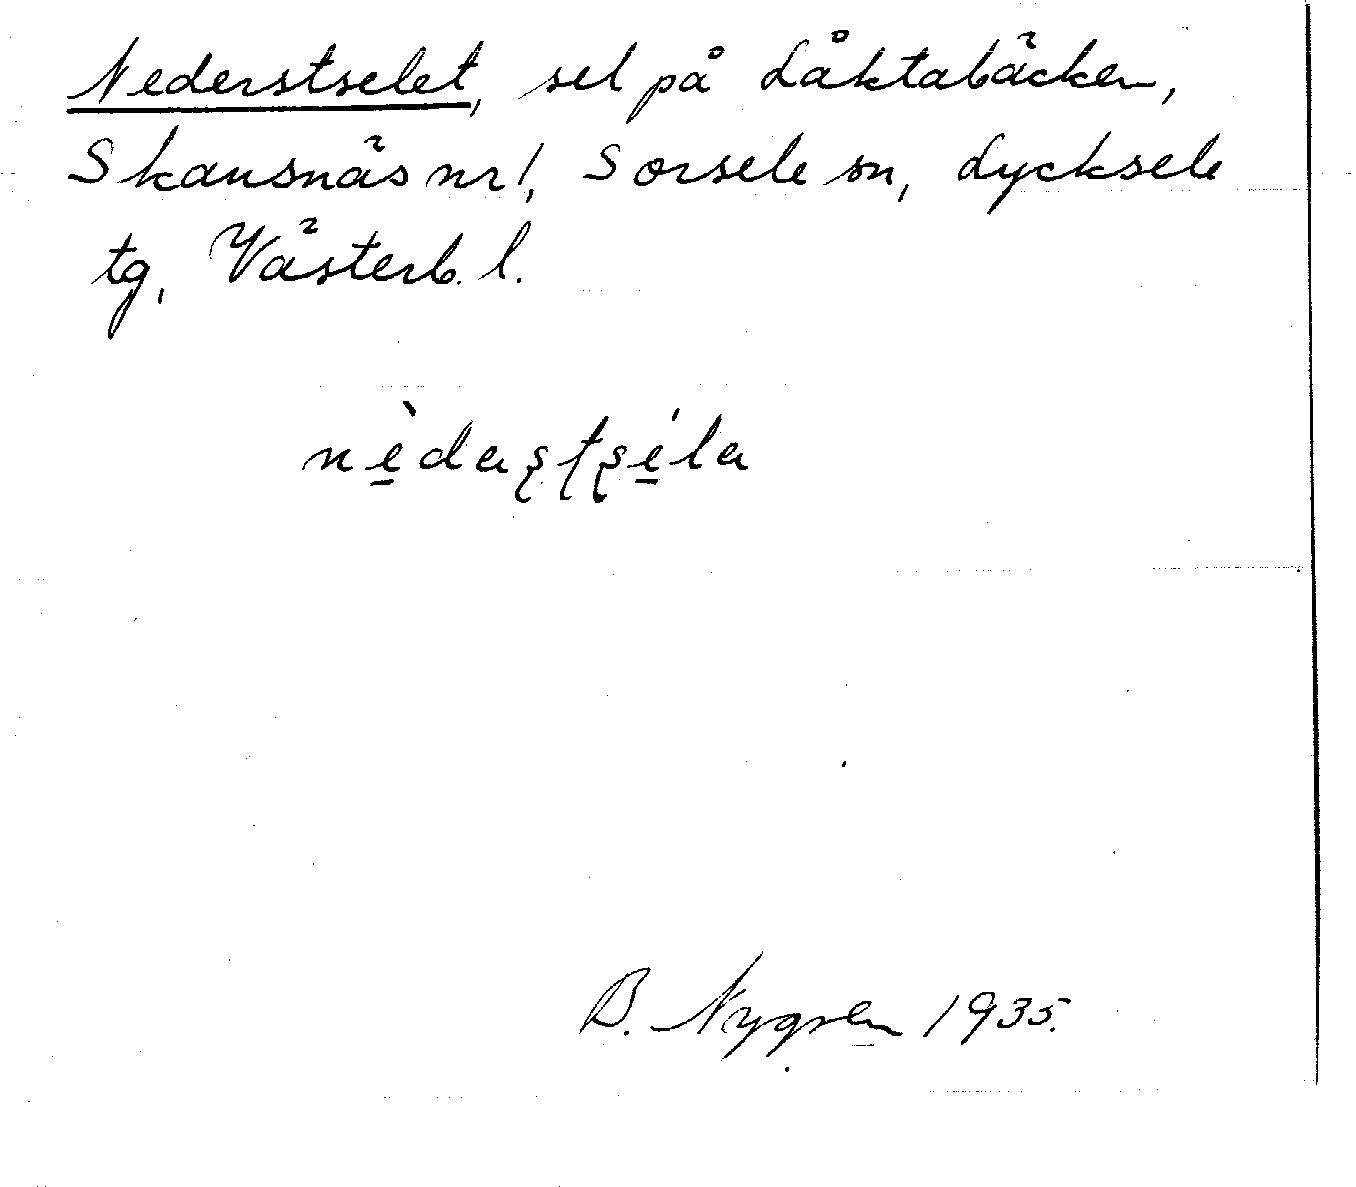 Nederstselet, sel på Låktabäcken,
Skansnäs nr 1, Sorsele sn, Lycksele
tg, Västerb. l.
nè̱daʂʈʂé̱la
B. Nygren 1935.